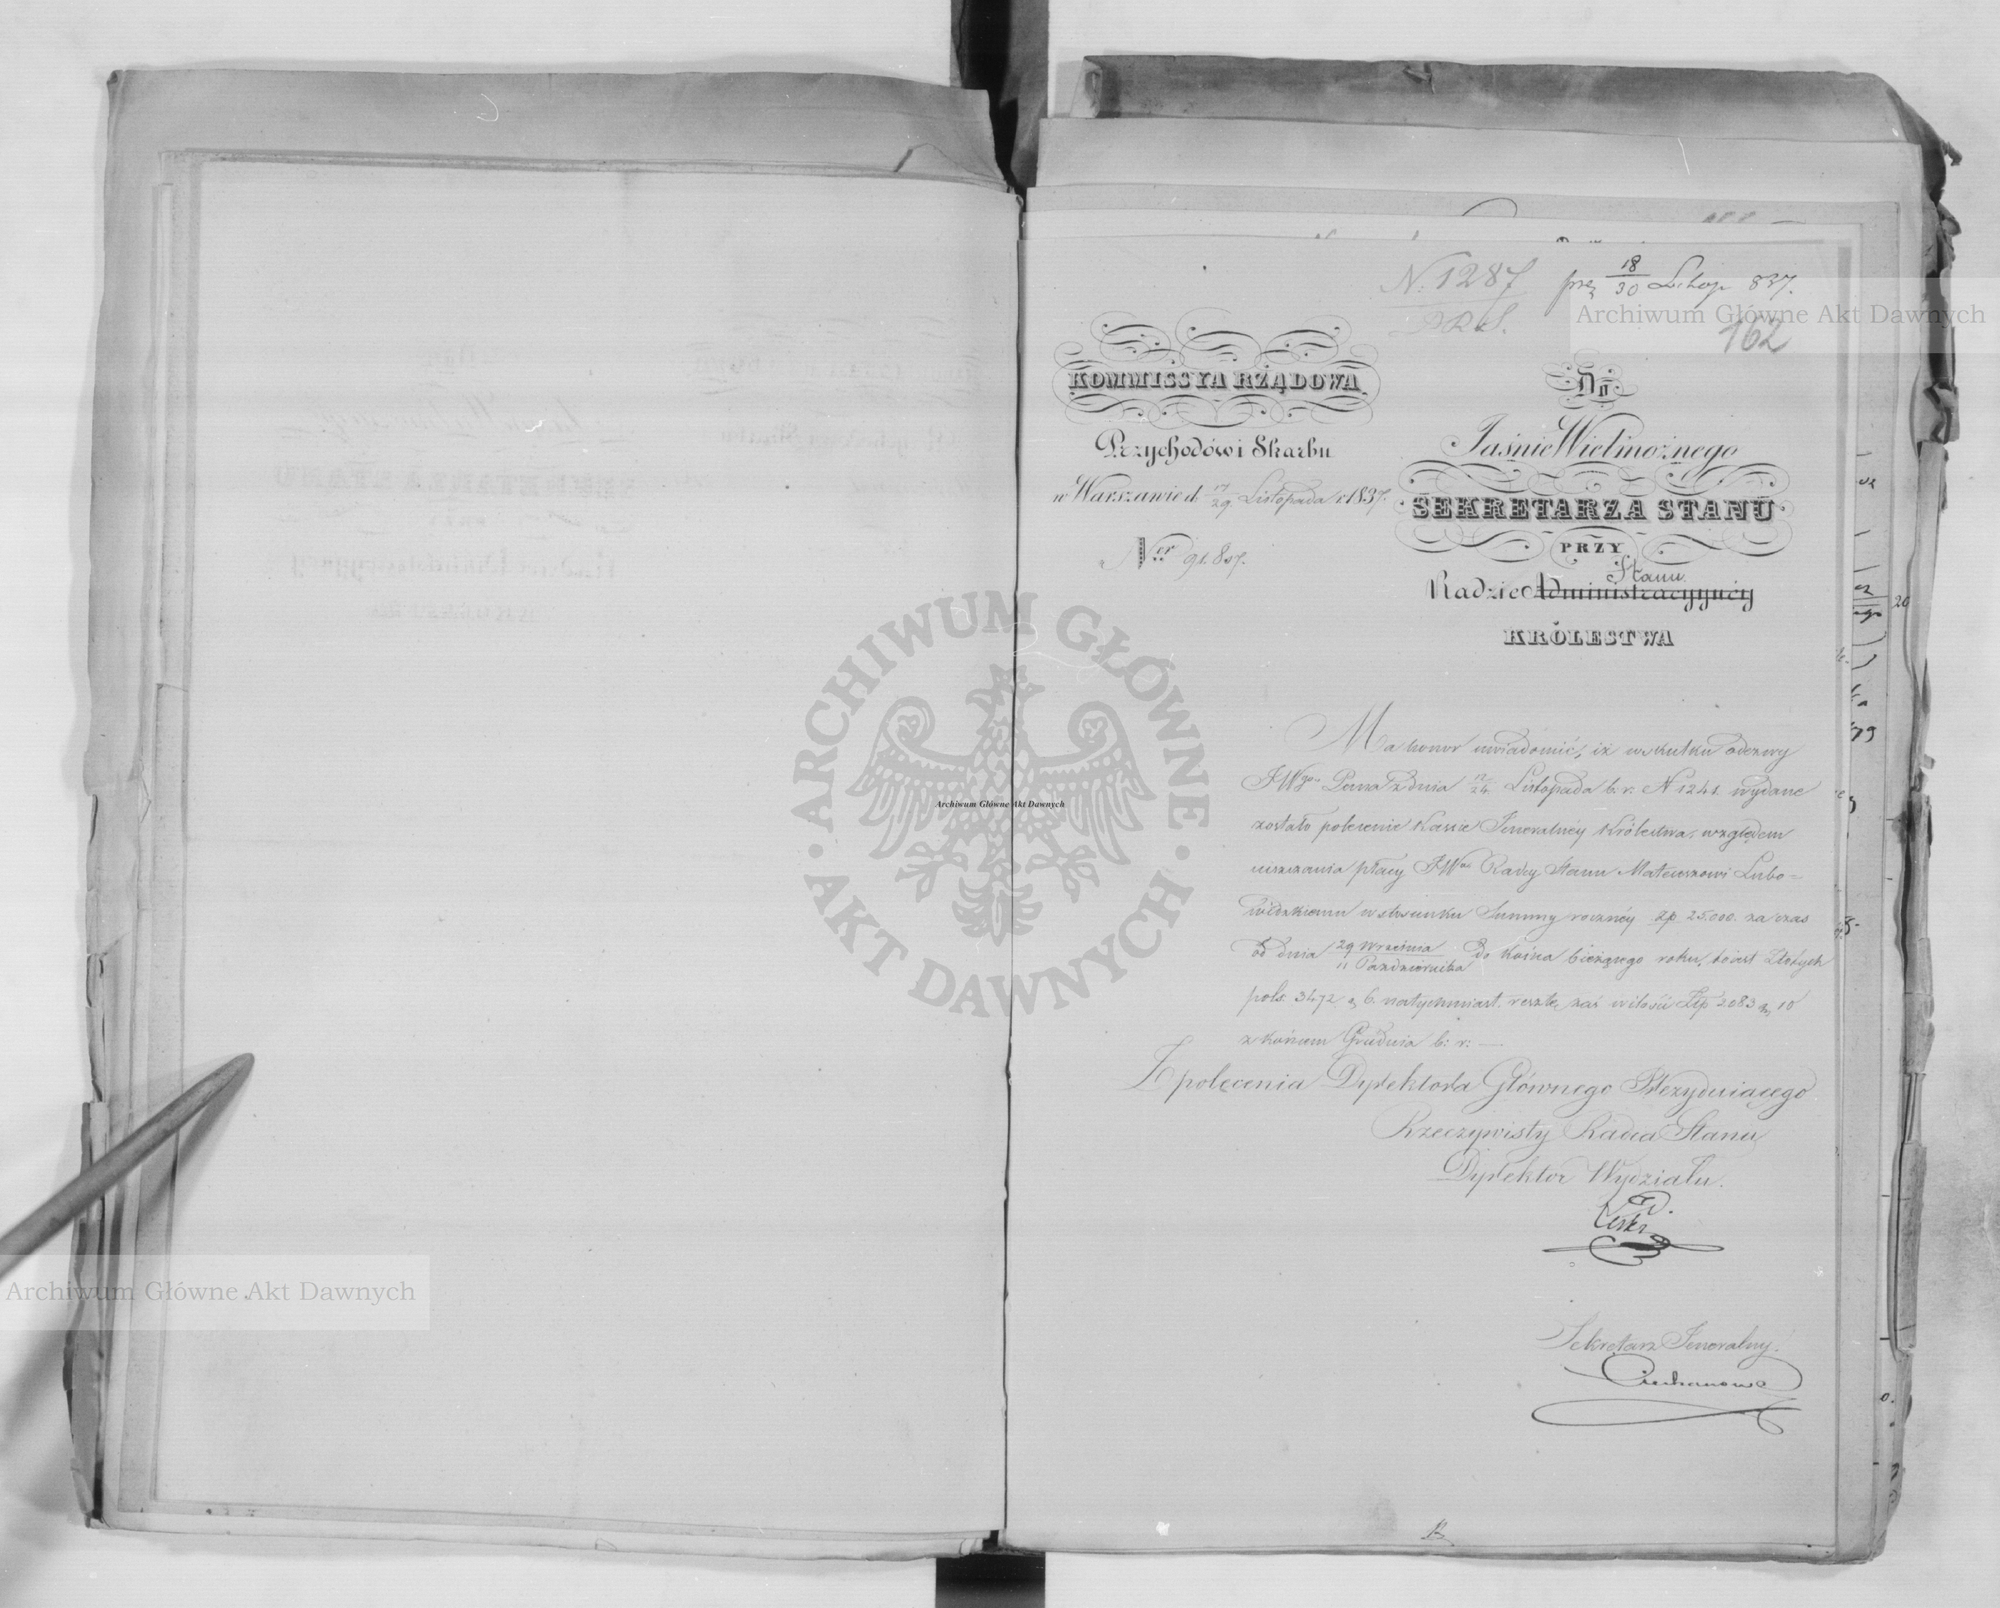 N. 1287
prez 18/30 Listop 837.
162
KOMMISSYA RZĄDOWA
Przychodów i Skarbu
w Warszawie d. 17/29 Listopada r. 1837.
Ner 91.807.
Do
Jaśnie Wielmożnego
SEKRETARZA STANU
PRZY
Stanu
Radzie Administracyynéy
KRÓLESTWA
Ma honor uwiadomić, iż wskutku odezwy
JWgo Pana z dnia 12/24 Listopada b. r. N 1241. wydane
zostało polecenie Kassie Jeneralnéy Królestwa, względem
uiszczania płacy JWmu Radcy Stanu Mateuszowi Lubo-
widzkiemu w stosunku Summy rocznéy Zp 25.000. za czas
od dnia 29 Września / 11 Października do końca bieżącego roku, to iest Złotych
pols. 3472 g 6. natychmiast, resztę zaś w ilości Złp 2083 g 10
z końcem Grudnia b: r: —
Z polecenia Dyrektora Głównego Prezyduiącego
Rzeczywisty Radca Stanu
Dyrektor Wydziału.
Sekretarz Jeneralny.
Archiwum Główne Akt Dawnych
Archiwum Główne Akt Dawnych
Archiwum Główne Akt Dawnych
ARCHIWUM GŁÓWNE · AKT DAWNYCH ·